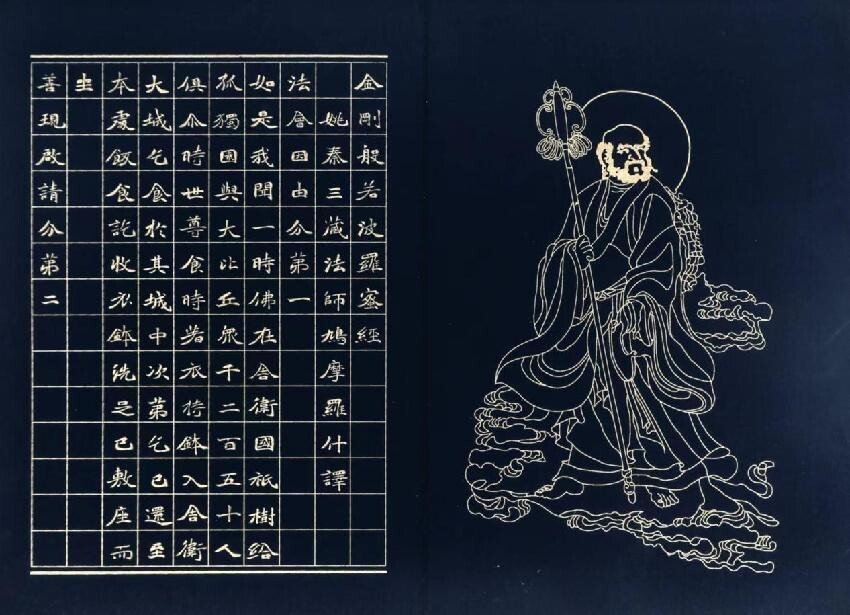 金剛般若波羅蜜經
姚秦三藏法師鳩摩羅什譯
法會因由分第一
如是我聞一時佛在舍衛國祇樹給
孤獨園與大比丘眾千二百五十人
俱尒時世尊食時著衣持鉢入舍衛
大城乞食於其城中次第乞已還至
本處飯食訖收衣鉢洗足已敷座而
坐
善現啟請分第二